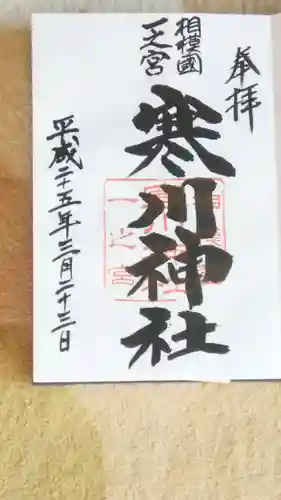 奉拝
相模國
一之宮
寒川神社
平成二十五年三月二十三日